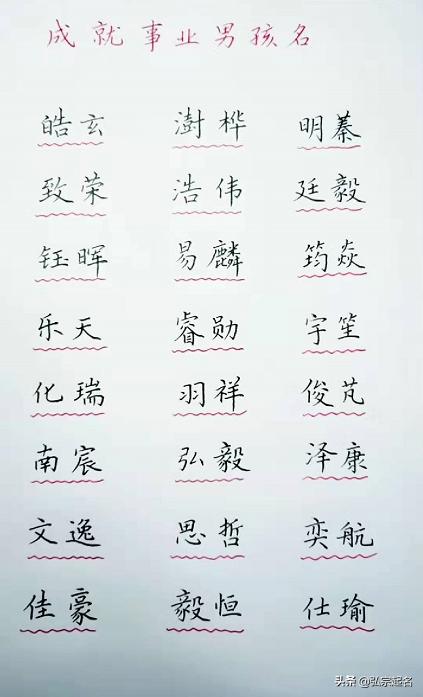 成就事业男孩名
皓玄 澍桦 明蓁
致荣 浩伟 廷毅
钰晖 易麟 筠焱
乐天 睿勋 宇笙
化瑞 羽祥 俊芃
南宸 弘毅 泽康
文逸 思哲 奕航
佳豪 毅恒 仕瑜
头条@弘宗起名